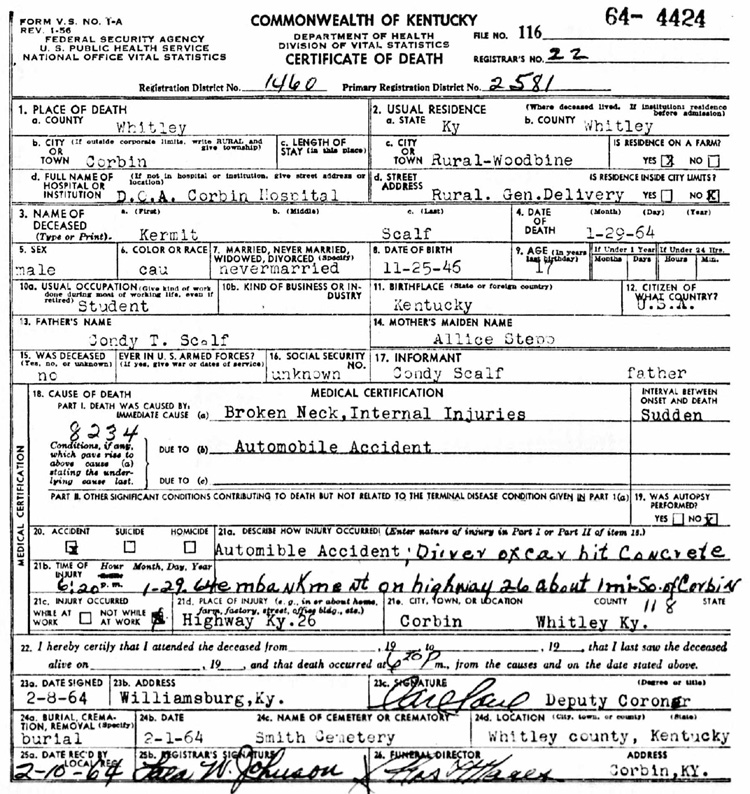 FORM V.S. NO. 1-A
REV. 1-56
FEDERAL SECURITY AGENCY
U. S. PUBLIC HEALTH SERVICE
NATIONAL OFFICE VITAL STATISTICS
COMMONWEALTH OF KENTUCKY
DEPARTMENT OF HEALTH
DIVISION OF VITAL STATISTICS
CERTIFICATE OF DEATH
64- 4424
FILE NO. 116
REGISTRAR'S NO. 22
Registration District No. 1460 Primary Registration District No. 2581
1. PLACE OF DEATH
a. COUNTY
Whitley
2. USUAL RESIDENCE (Where deceased lived. If institution: residence before admission)
a. STATE Ky b. COUNTY Whitley
b. CITY (If outside corporate limits, write RURAL and give township)
OR
TOWN Corbin
c. LENGTH OF STAY (in this place)
c. CITY
OR
TOWN Rural-Woodbine
IS RESIDENCE ON A FARM?
YES X NO
d. FULL NAME OF (If not in hospital or institution, give street address or location)
HOSPITAL OR
INSTITUTION D.O.A. Corbin Hospital
d. STREET
ADDRESS Rural. Gen.Delivery
IS RESIDENCE INSIDE CITY LIMITS?
YES NO X
3. NAME OF DECEASED (Type or Print)
a. (First) b. (Middle) c. (Last)
Kermit Scalf
4. DATE OF DEATH (Month) (Day) (Year)
1-29-64
5. SEX
male
6. COLOR OR RACE
cau
7. MARRIED, NEVER MARRIED, WIDOWED, DIVORCED (Specify)
nevermarried
8. DATE OF BIRTH
11-25-46
9. AGE (In years last birthday)
17
If Under 1 Year If Under 24 Hrs.
Months Days Hours Min.
10a. USUAL OCCUPATION (Give kind of work done during most of working life, even if retired)
Student
10b. KIND OF BUSINESS OR INDUSTRY
11. BIRTHPLACE (State or foreign country)
Kentucky
12. CITIZEN OF WHAT COUNTRY?
U.S.A.
13. FATHER'S NAME
Condy T. Scalf
14. MOTHER'S MAIDEN NAME
Allice Stepp
15. WAS DECEASED EVER IN U. S. ARMED FORCES?
(Yes, no, or unknown) (If yes, give war or dates of service)
no
16. SOCIAL SECURITY NO.
unknown
17. INFORMANT
Condy Scalf father
18. CAUSE OF DEATH MEDICAL CERTIFICATION
PART I. DEATH WAS CAUSED BY:
IMMEDIATE CAUSE (a) Broken Neck,Internal Injuries
INTERVAL BETWEEN ONSET AND DEATH
Sudden
8234
Conditions, if any, which gave rise to above cause (a) stating the underlying cause last.
DUE TO (b) Automobile Accident
DUE TO (c)
MEDICAL CERTIFICATION
PART II. OTHER SIGNIFICANT CONDITIONS CONTRIBUTING TO DEATH BUT NOT RELATED TO THE TERMINAL DISEASE CONDITION GIVEN IN PART 1(a)
19. WAS AUTOPSY PERFORMED?
YES NO X
20. ACCIDENT SUICIDE HOMICIDE
X
21a. DESCRIBE HOW INJURY OCCURRED (Enter nature of injury in Part I or Part II of item 18.)
Automible Accident; Driver of car hit Concrete
21b. TIME OF INJURY Hour Month, Day, Year
6:20 p. m. 1-29-64 embankment on highway 26 about 1 mi-So. of Corbin
21c. INJURY OCCURRED
WHILE AT WORK NOT WHILE AT WORK
21d. PLACE OF INJURY (e. g., in or about home, farm, factory, street, office bldg., etc.)
Highway Ky.26
21e. CITY, TOWN, OR LOCATION COUNTY 118 STATE
Corbin Whitley Ky.
22. I hereby certify that I attended the deceased from , 19 to , 19 , that I last saw the deceased
alive on , 19 , and that death occurred at 6:20 P m., from the causes and on the date stated above.
23a. DATE SIGNED
2-8-64
23b. ADDRESS
Williamsburg,Ky.
23c. SIGNATURE (Degree or title)
Deputy Coroner
24a. BURIAL, CREMATION, REMOVAL (Specify)
burial
24b. DATE
2-1-64
24c. NAME OF CEMETERY OR CREMATORY
Smith Cemetery
24d. LOCATION (City, town, or county) (State)
Whitley county, Kentucky
25a. DATE REC'D BY LOCAL REG.
2-10-64
25b. REGISTRAR'S SIGNATURE
W. Johnson
26. FUNERAL DIRECTOR ADDRESS
Corbin,KY.